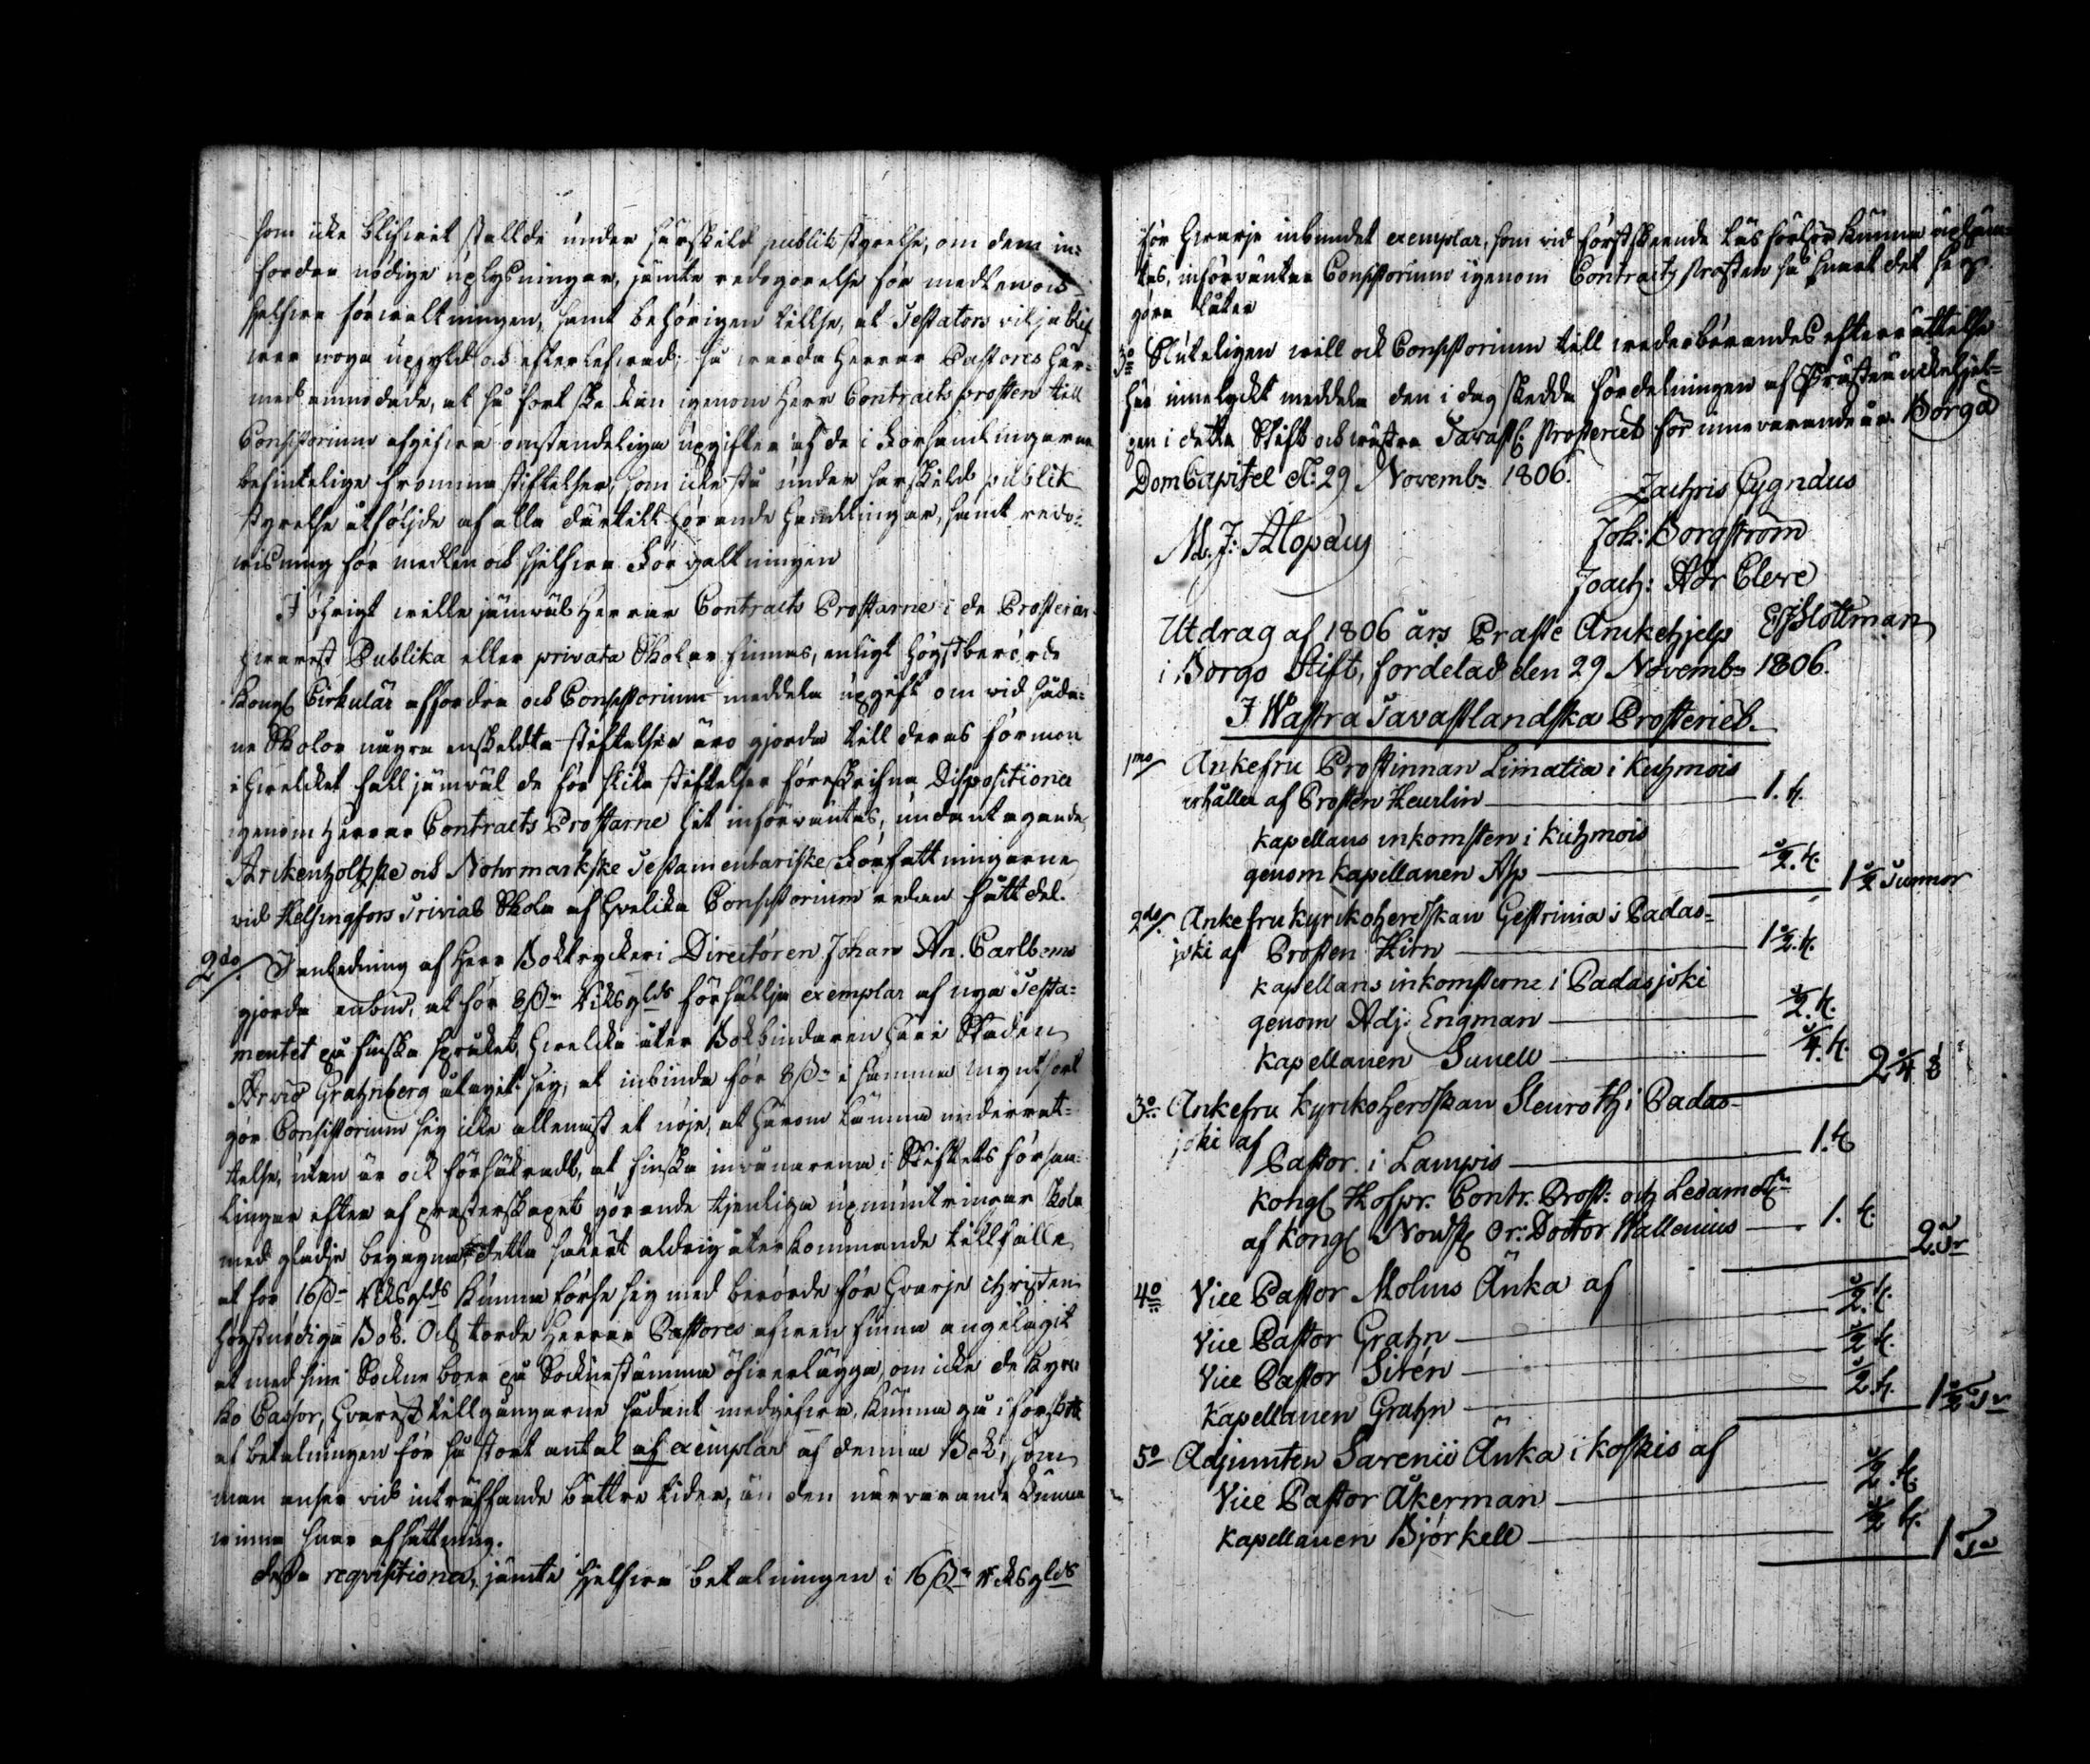 som icke blifwit stälde under särskild publik styrelse, om dem in-
fordra nödige uplysningar, jämte redogörelse för medlen och
sjelfwa förwaltningen, samt behörigen tillse, at Testators wilja blif
wer noga upfyld och efterlefwad; så warda Herrar Pastores här-
med anmodade, at så fort ske kan igenom Herr Contracts prosten till
Consistorium afgifwa omständeliga upgifter af de i Församlingarne
befintelige fromma stiftelser, som icke stå under särskild publik
styrelse åtföljde af alla dertill hörande handlingar, samt redo-
wisning för medlen och sjelfwa Förwaltningen
I öfrigt wille jämwäl Herrar Contracts Prostarne i de Prosterier
hwarest Publika eller privata Skolor finnas, enligt högstberörde
Kongl Cirkulär affordra och Consistorium meddela upgift om wid såda-
ne Skolor några enskildta stiftelser äro gjorda till deras förmon
i hwilcket fall jämwäl de för slika stiftelser föreskrifna Dispositioner
igenom Herrar Contracts Prostarne hit införwäntas, undantagande
Arckenholtzske och Nohrmarkske Testamentariske Författningarne
wid Helsingfors Trivial Skola af hwilka Consistorium redan fått del.
2do. I anledning af Herr Boktryckeri Directören Johan An. Carlboms
gjorda anbud, at för 8 ß Riksglds försällja exemplar af nya Testa-
mentet på finska språket, hwilcka åter Bokbindaren här i Staden
Arvid Grahnberg åtagit sig, at inbinda för 8 ß i samma myntsort
gör Consistorium sig icke allenast et nöje, at härom lämna underrät-
telse, utan är ock försäkradt, at finska inwånarena i Stiftets försam-
lingar efter af presterskapet görande tjenliga upmuntringar skola
med glädje begagna detta säkert aldrig återkommande tillfälle
at för 16 ß Riksglds kunna förse sig med berörde för hwarje christen
högstnödiga Bok. Och torde Herrar Pastores äfwen finna angelägit
at med sine Sockne boer på Sockenstämma öfwerlägga, om icke de Kyrc
ko Cassor, hwarest tillgångarne sådant medgifwa, kunna gå i förskott
af betalningen för så stort antal af exemplar af denna Bok, som
man anser wid inträffande bättre tider, än den närwarande kunna
winna snar afsättning.
Desse reqvisitioner, jämte sjelfwa betalningen i 16 ß Riksglds
för hwarje inbundet exemplar, som wid förstskeende Läsförhör kunna uphäm-
tas, införwäntar Consistorium igenom Contracts Prosten så snart det sig
göra låter
3o Sluteligen will ock Consistorium till wederbörandes efterrättelse
här innelyckt meddela den i dag skedda fördelningen af Präste Änckehjel-
pen i detta Stift och wästra Tavastl: Prosteriet för innewarande år. Borgå
DomCapitel d: 29 Novembr 1806.
Zachris Cygnæus
M. J: Alopæus
Joh: Borgström
Joach: Adr Cleve
E J Slottman
Utdrag af 1806 års Præste Ankehjelp
i Borgo Stift, fordelad den 29 Novembr 1806.
I Wästra Tavastlandska Prosteriet.
1mo Ankefru Prostinnan Limatia i Kuhmois
erhåller af Prosten Heurlin 1. t.
Kapellans inkomsten i Kuhmois
genom Kapellanen Asp 1/2. t.
1 1/2 Tunnor
2do. Ankefru Kyrkoherdskan Gestrinia i Padas-
joki af Prosten Hirn 1 1/2. t.
Kapellans inkomsterne i Padasjoki
genom Adj: Engman 1/2. t.
Kapellanen Sunell 1/4. t.
2 1/4
3o Ankefru Kyrkoherdskan Steuroth i Padas-
joki af
Pastor i Lampis 1. t
Kongl Hofpr. Contr. Prost: och Ledamot
af Kongl Nordst Or: Doctor Wallenius 1. t.
2. Tr
4o Vice Pastor Molins Änka af
Vice Pastor Grahn 1/2. t.
Vice Pastor Sirén 1/2 t.
Kapellanen Grahn 1/2 t.
1 1/2 Tr
5o Adjuncten Sarenii Änka i Koskis af
Vice Pastor Åkerman 1/2. t.
Kapellanen Björkell 1/2 t.
1 Tr